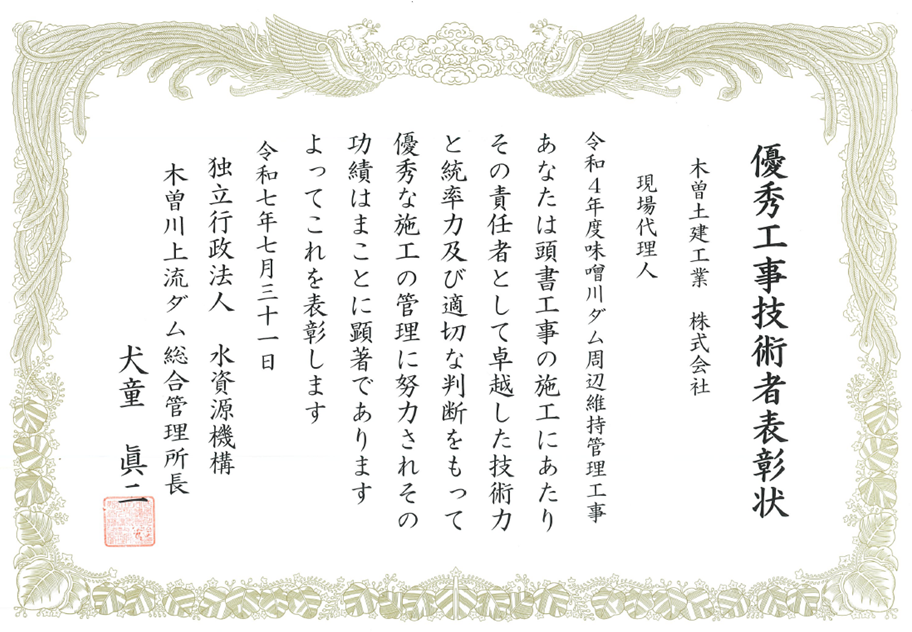 優秀工事技術者表彰状
木曽土建工業 株式会社
現場代理人
令和4年度味噌川ダム周辺維持管理工事
あなたは頭書工事の施工にあたり
その責任者として卓越した技術力
と統率力及び適切な判断をもって
優秀な施工の管理に努力されその
功績はまことに顕著であります
よってこれを表彰します
令和七年七月三十一日
独立行政法人 水資源機構
木曽川上流ダム総合管理所長
犬童 眞二